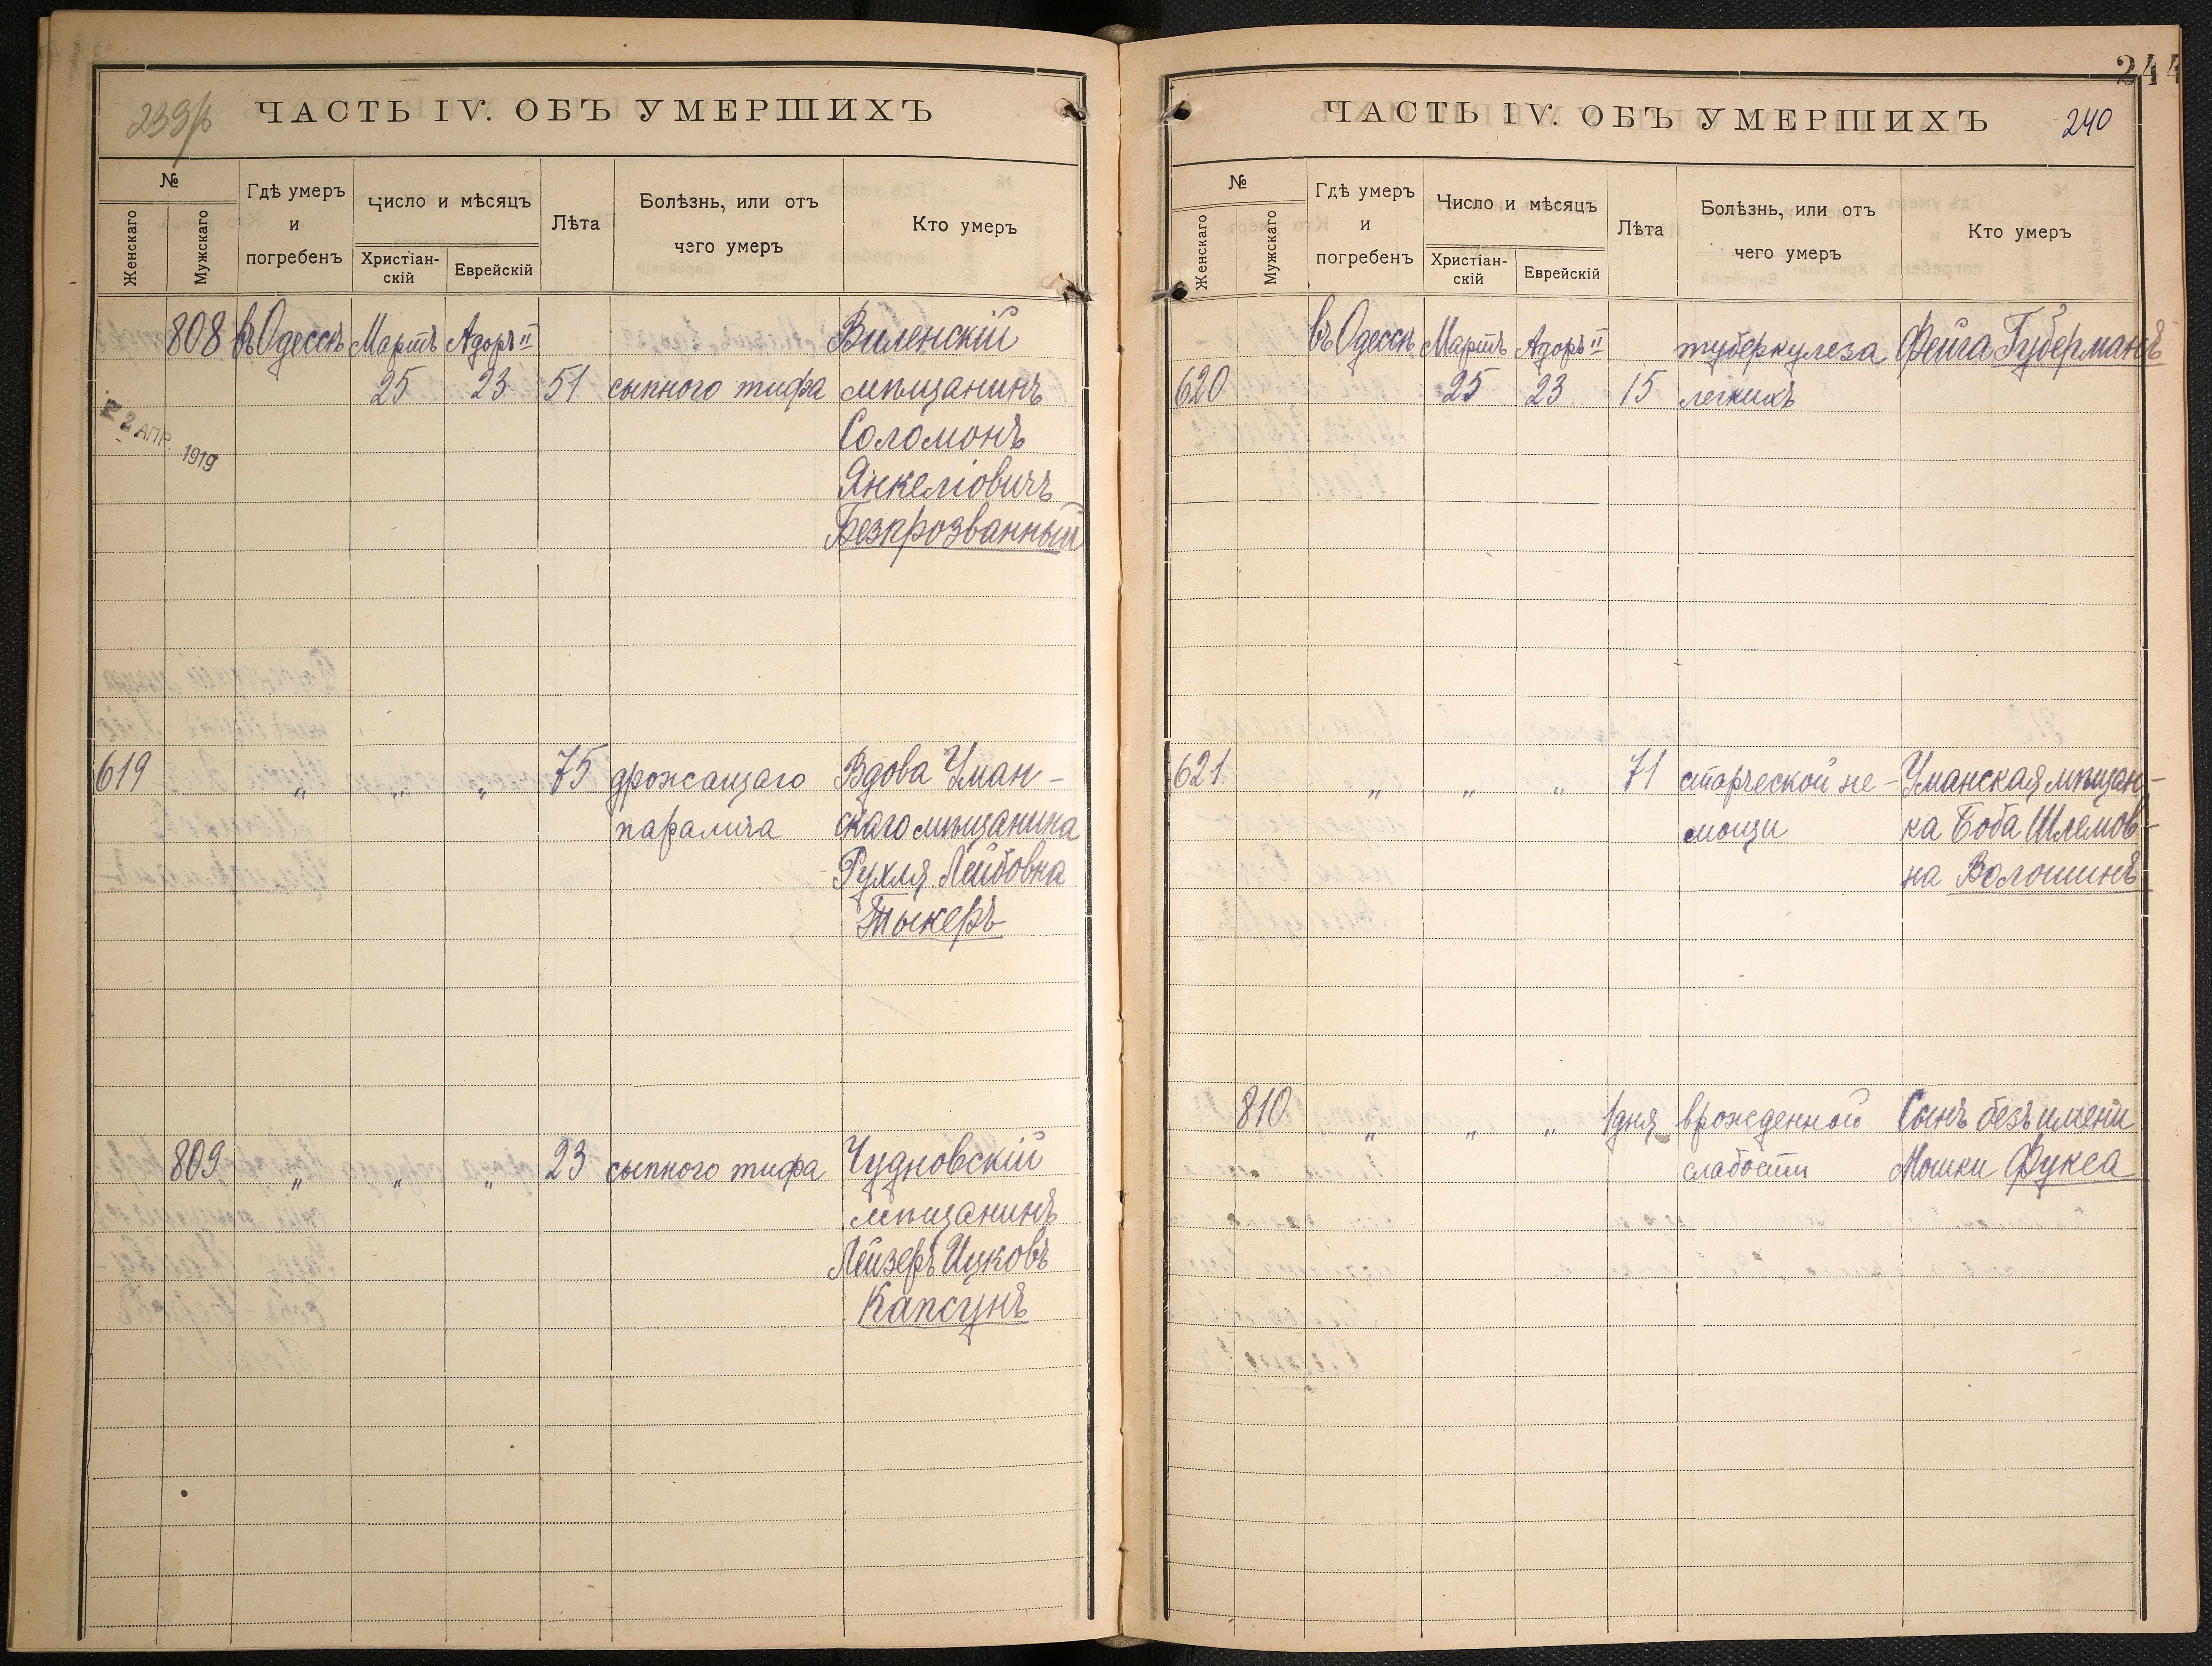 239
ЧАСТЬ IV. ОБЪ УМЕРШИХЪ
№
Женскаго
Мужскаго
Гдѣ умеръ
и
погребенъ
Число и мѣсяцъ
Христіан-
скій
Еврейскій
Лѣта
Болѣзнь, или отъ
чего умеръ
Кто умеръ
808 въ Одессѣ Мартъ Адоръ II Виленскій
25 23 51 сыпного тифа мѣщанинъ
2 АПР. 1919
Соломонъ
Янкеліовичъ
Безпрозванный
619 „ „ „ 75 дрожащаго Вдова Уман-
паралича скаго мѣщанина
Рухля Лейбовна
Тыкеръ
809 „ „ „ 23 сыпного тифа Чудновскій
мѣщанинъ
Лейзеръ Ицковъ
Капсунъ
244
ЧАСТЬ IV. ОБЪ УМЕРШИХЪ
240
№
Женскаго
Мужскаго
Гдѣ умеръ
и
погребенъ
Число и мѣсяцъ
Христіан-
скій
Еврейскій
Лѣта
Болѣзнь, или отъ
чего умеръ
Кто умеръ
въ Одессѣ Мартъ Адоръ II туберкулеза Фейга Губерманъ
620 25 23 15 легкихъ
621 „ „ „ 71 старческой не- Уманская мѣщан-
мощи ка Боба Шлемов-
на Волошинъ
810 „ „ „ 1 дня врожденной Сынъ безъ имени
слабости Мошки Фукса